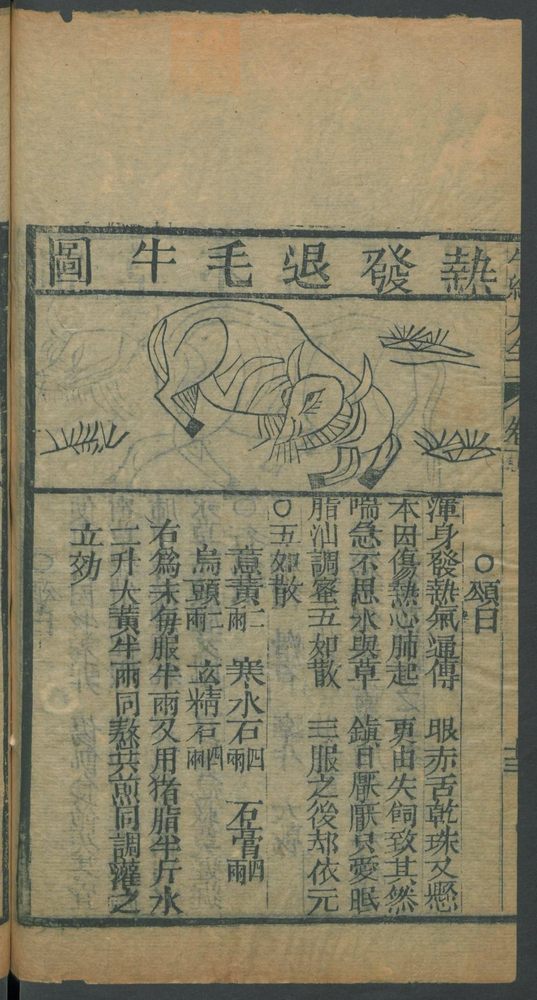 熱發退毛牛圖
○頌曰
渾身發熱氣通傳 眼赤舌乾珠又懸
本因傷熱心肺起 更由失飼致其然
喘急不思水與草 鎮日厭厭只愛眠
脂油調蜜五如散 三服之後却依元
○五如散
黃二兩 寒水石四兩 石膏四兩
烏頭二兩 玄精石四兩
右為末每服半兩又用猪脂半斤水
二升大黃半兩同熬共煎同調灌之
立効